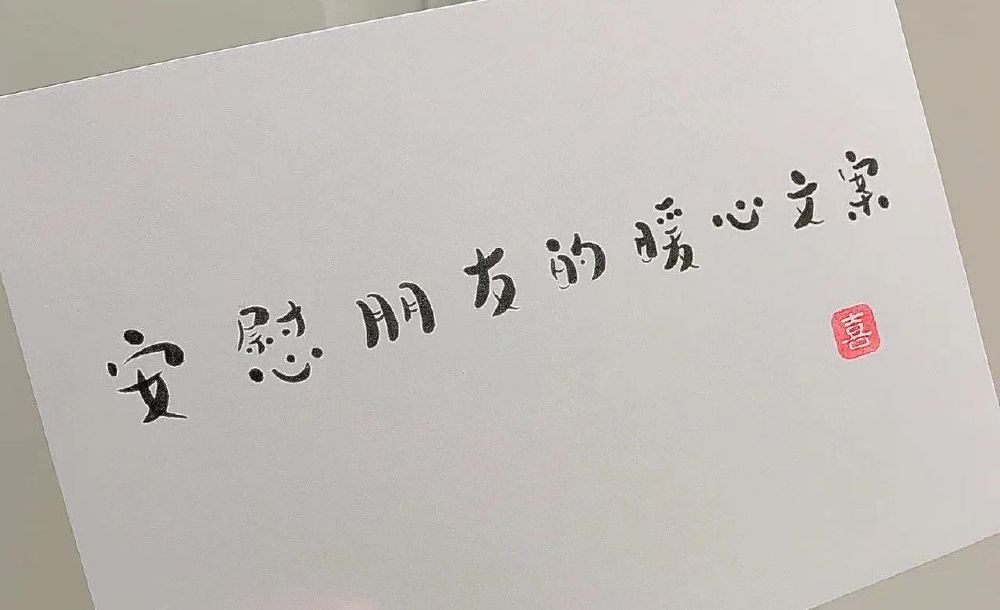 安慰朋友的暖心文案
喜